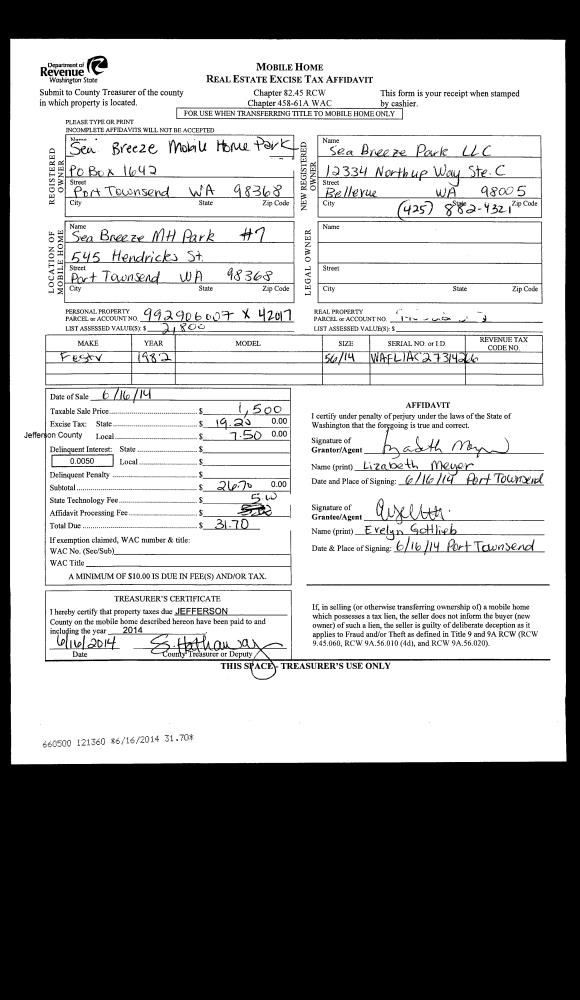 Department of
Revenue
Washington State
MOBILE HOME
REAL ESTATE EXCISE TAX AFFIDAVIT
Submit to County Treasurer of the county
in which property is located.
Chapter 82.45 RCW
Chapter 458-61A WAC
This form is your receipt when stamped
by cashier.
FOR USE WHEN TRANSFERRING TITLE TO MOBILE HOME ONLY
PLEASE TYPE OR PRINT
INCOMPLETE AFFIDAVITS WILL NOT BE ACCEPTED
REGISTERED OWNER
Name
Sea Breeze Mobile Home Park
PO Box 1642
Street
Port Townsend WA 98368
City State Zip Code
NEW REGISTERED OWNER
Name
Sea Breeze Park LLC
12334 Northup Way Ste. C
Street
Bellevue WA 98005
City State Zip Code
(425) 882-4321
LOCATION OF MOBILE HOME
Name
Sea Breeze MH Park #7
545 Hendricks St.
Street
Port Townsend WA 98368
City State Zip Code
LEGAL OWNER
Name
Street
City State Zip Code
PERSONAL PROPERTY
PARCEL or ACCOUNT NO. 992906007 X 42017
LIST ASSESSED VALUE(S): $ 2,800
REAL PROPERTY
PARCEL or ACCOUNT NO.
LIST ASSESSED VALUE(S): $
MAKE YEAR MODEL SIZE SERIAL NO. or I.D. REVENUE TAX CODE NO.
1982 56/14
Date of Sale 6/16/14
Taxable Sale Price $ 1,500
Excise Tax: State $ 19.20 0.00
Jefferson County Local $ 7.50 0.00
Delinquent Interest: State $
0.0050 Local $
Delinquent Penalty $
Subtotal $ 26.70 0.00
State Technology Fee $ 5.00
Affidavit Processing Fee $
Total Due $ 31.70
If exemption claimed, WAC number & title:
WAC No. (Sec/Sub)
WAC Title
A MINIMUM OF $10.00 IS DUE IN FEE(S) AND/OR TAX.
AFFIDAVIT
I certify under penalty of perjury under the laws of the State of
Washington that the foregoing is true and correct.
Signature of
Grantor/Agent
Name (print) Lizabeth Meyer
Date and Place of Signing: 6/16/14 Port Townsend
Signature of
Grantee/Agent
Name (print) Evelyn Gottlieb
Date & Place of Signing: 6/16/14 Port Townsend
TREASURER'S CERTIFICATE
I hereby certify that property taxes due JEFFERSON
County on the mobile home described hereon have been paid to and
including the year 2014
6/16/2014 S. Hathaway
Date County Treasurer or Deputy
If, in selling (or otherwise transferring ownership of) a mobile home
which possesses a tax lien, the seller does not inform the buyer (new
owner) of such a lien, the seller is guilty of deliberate deception as it
applies to Fraud and/or Theft as defined in Title 9 and 9A RCW (RCW
9.45.060, RCW 9A.56.010 (4d), and RCW 9A.56.020).
THIS SPACE - TREASURER'S USE ONLY
660500 121360 *6/16/2014 31.70*